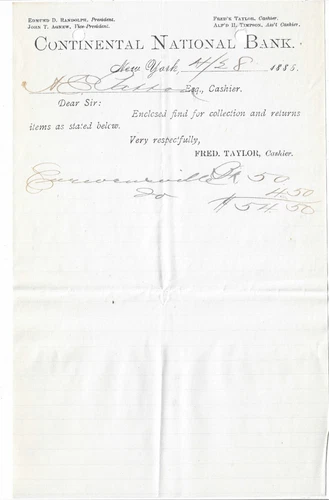 EDMUND D. RANDOLPH, President. FRED'K TAYLOR, Cashier.
JOHN T. AGNEW, Vice-President. ALF'D H. TIMPSON, Ass't Cashier.
CONTINENTAL NATIONAL BANK.
New York, 4/28 1885.
Esq., Cashier.
Dear Sir:
Enclosed find for collection and returns
items as stated below.
Very respectfully,
FRED. TAYLOR, Cashier.
Curwensville Pa 50
Do 4.50
$ 54.50